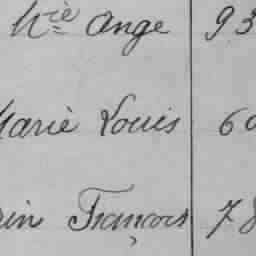 Ange 93
Marie Louis 60
François 78